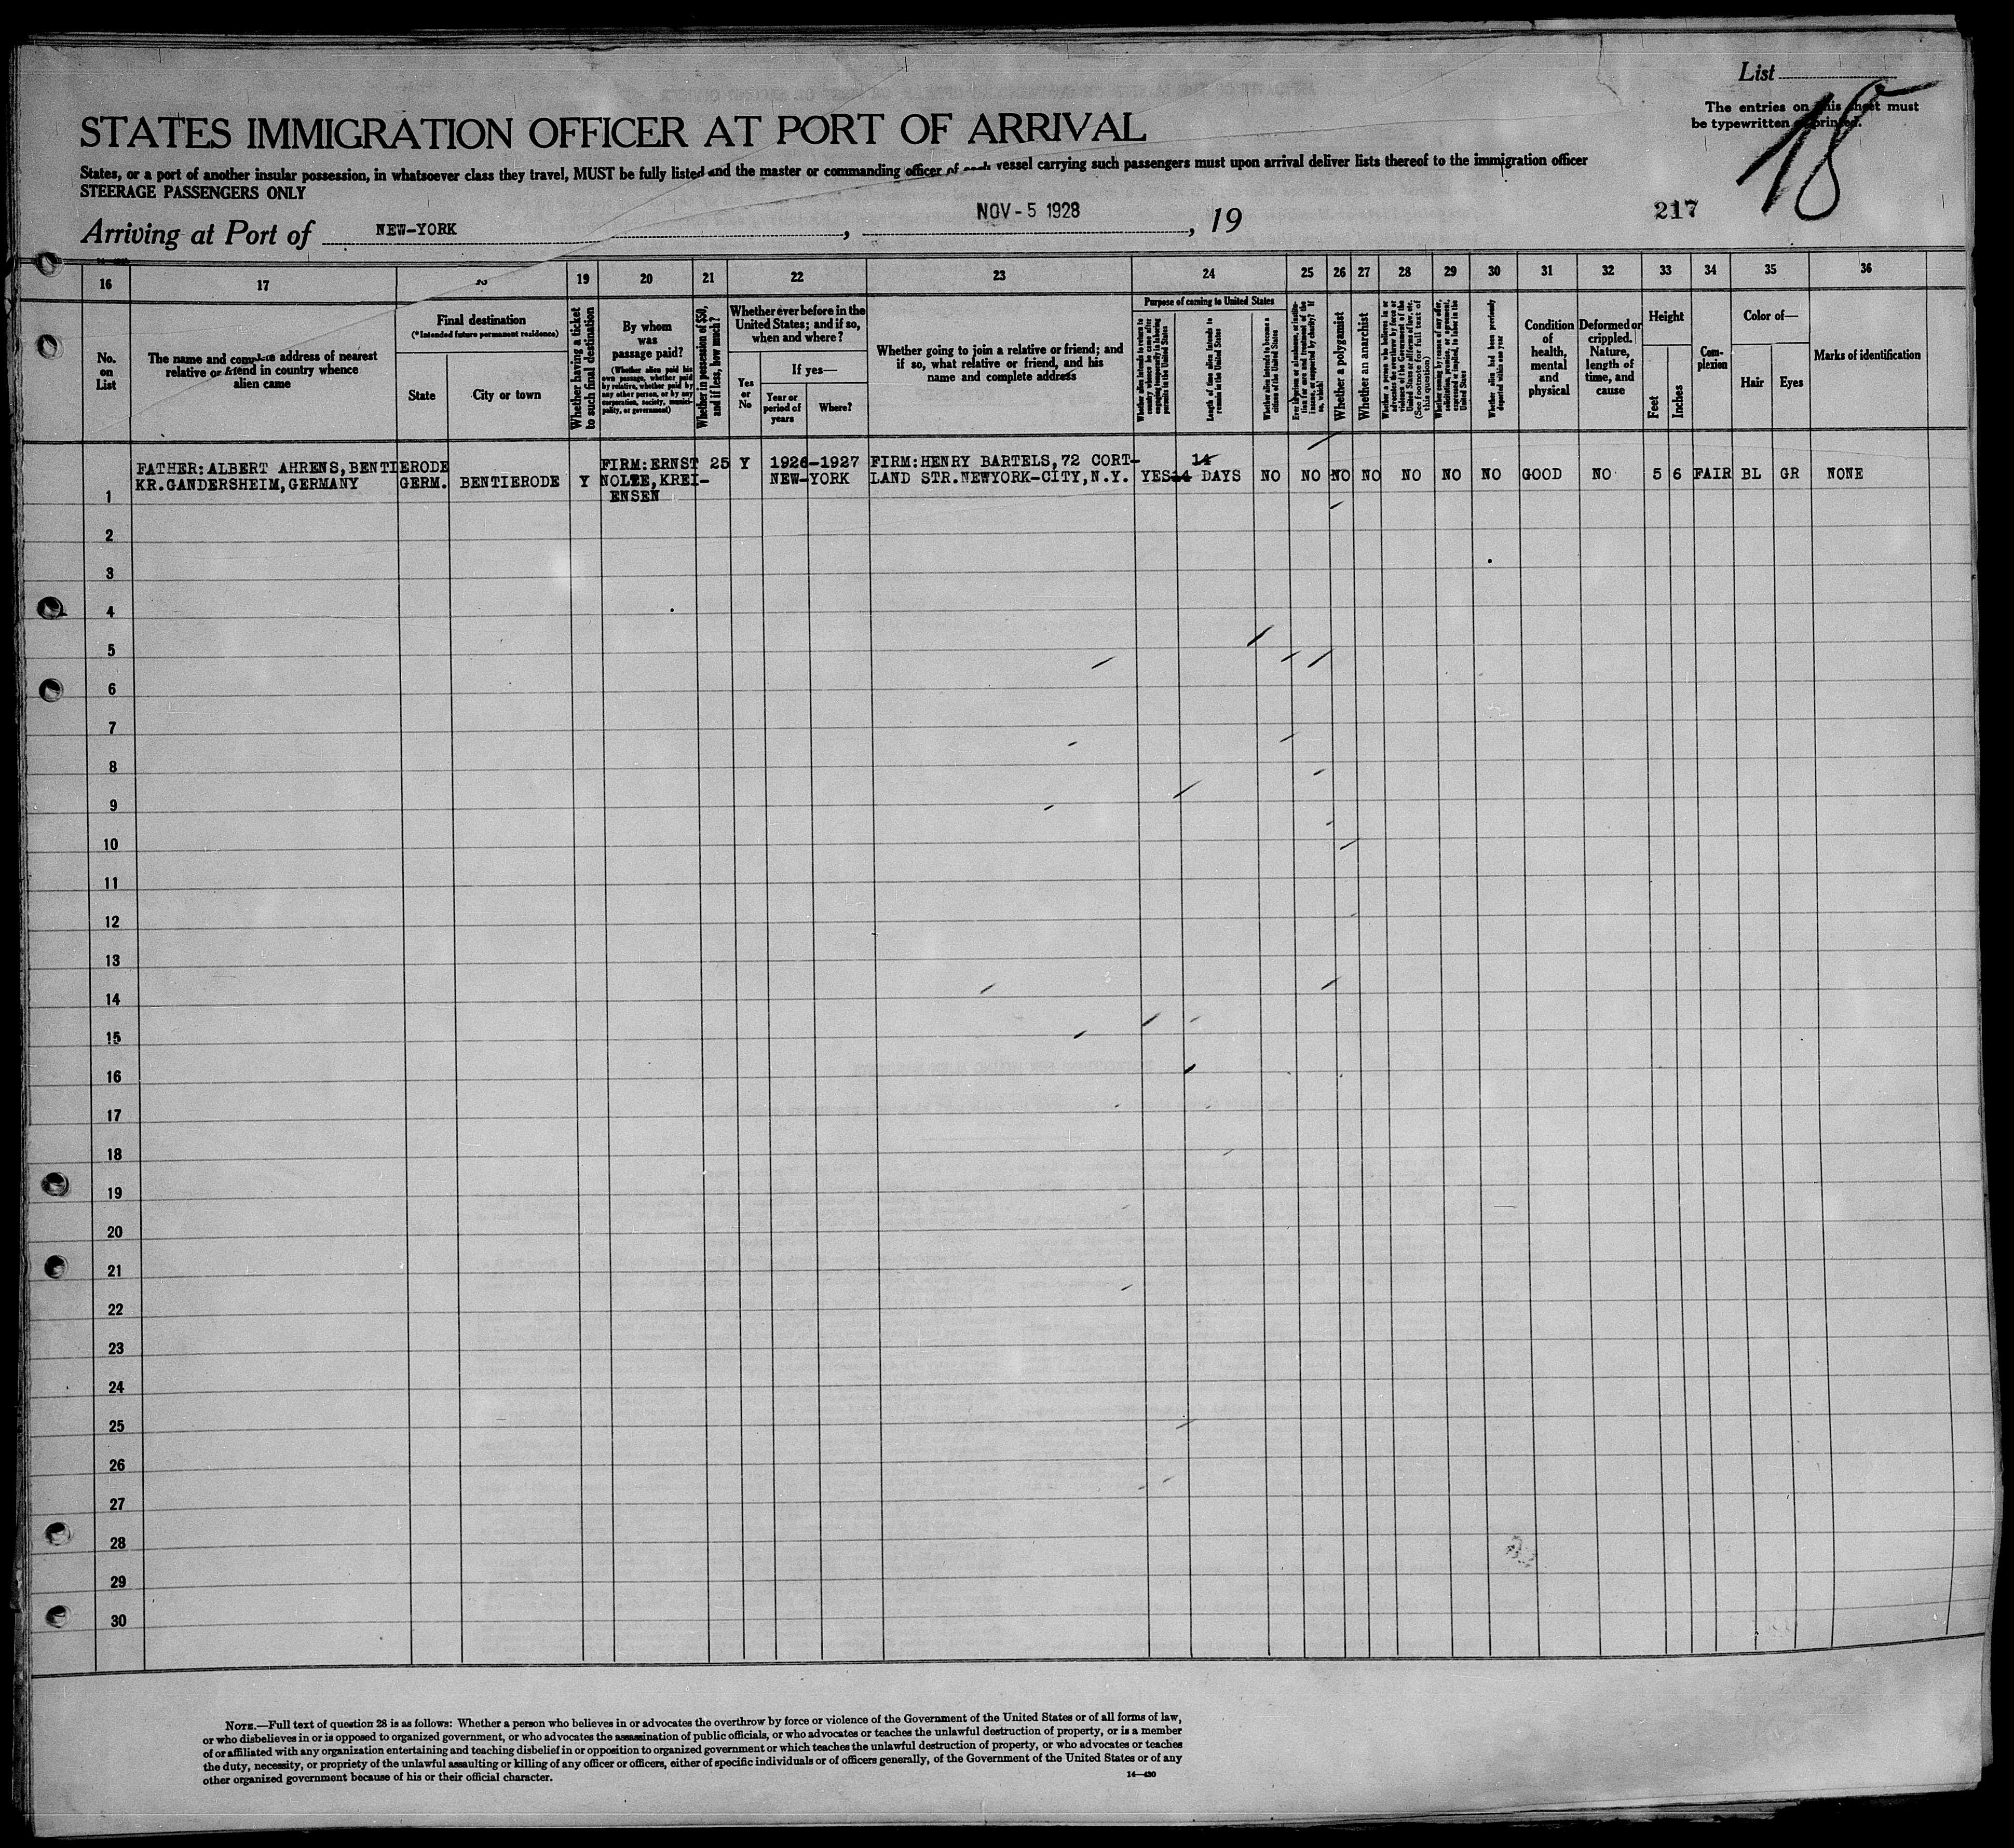 List
The entries on this sheet must
be typewritten or printed.
18
STATES IMMIGRATION OFFICER AT PORT OF ARRIVAL
States, or a port of another insular possession, in whatsoever class they travel, MUST be fully listed and the master or commanding officer of each vessel carrying such passengers must upon arrival deliver lists thereof to the immigration officer
STEERAGE PASSENGERS ONLY
217
Arriving at Port of NEW-YORK, NOV - 5 1928, 19
16 17 19 20 21 22 23 24 25 26 27 28 29 30 31 32 33 34 35 36
No.
on
List
The name and complete address of nearest
relative or friend in country whence
alien came
Final destination
(*Intended future permanent residence)
State
City or town
Whether having a ticket
to such final destination
By whom
was
passage paid?
(Whether alien paid his
own passage, whether paid
by relative, whether paid by
any other person, or by any
corporation, society, munici-
pality, or government)
Whether in possession of $50,
and if less, how much?
Whether ever before in the
United States; and if so,
when and where?
Yes
or
No
If yes—
Year or
period of
years
Where?
Whether going to join a relative or friend; and
if so, what relative or friend, and his
name and complete address
Purpose of coming to United States
Whether alien intends to return to
country whence he came after
engaging temporarily in laboring
pursuits in the United States
Length of time alien intends to
remain in the United States
Whether alien intends to become a
citizen of the United States
Ever in prison or almshouse, or institu-
tion for care and treatment of the
insane, or supported by charity? If
so, which?
Whether a polygamist
Whether an anarchist
Whether a person who believes in or
advocates the overthrow by force or
violence of the Government of the
United States or all forms of law, etc.
(See footnote for full text of
this question)
Whether coming by reason of any offer,
solicitation, promise, or agreement,
expressed or implied, to labor in the
United States
Whether alien had been previously
deported within one year
Condition
of
health,
mental
and
physical
Deformed or
crippled.
Nature,
length of
time, and
cause
Height
Feet
Inches
Com-
plexion
Color of—
Hair
Eyes
Marks of identification
FATHER:ALBERT AHRENS,BENTIERODE FIRM:ERNST 25 Y 1926-1927 FIRM:HENRY BARTELS,72 CORT- 14
KR.GANDERSHEIM,GERMANY GERM. BENTIERODE Y NOLTE,KREI- NEW-YORK LAND STR.NEWYORK-CITY,N.Y. YES 14 DAYS NO NO NO NO NO NO NO GOOD NO 5 6 FAIR BL GR NONE
1 ENSEN
2
3
4
5
6
7
8
9
10
11
12
13
14
15
16
17
18
19
20
21
22
23
24
25
26
27
28
29
30
NOTE.—Full text of question 28 is as follows: Whether a person who believes in or advocates the overthrow by force or violence of the Government of the United States or of all forms of law,
or who disbelieves in or is opposed to organized government, or who advocates the assassination of public officials, or who advocates or teaches the unlawful destruction of property, or is a member
of or affiliated with any organization entertaining and teaching disbelief in or opposition to organized government or which teaches the unlawful destruction of property, or who advocates or teaches
the duty, necessity, or propriety of the unlawful assaulting or killing of any officer or officers, either of specific individuals or of officers generally, of the Government of the United States or of any
other organized government because of his or their official character.
14—430